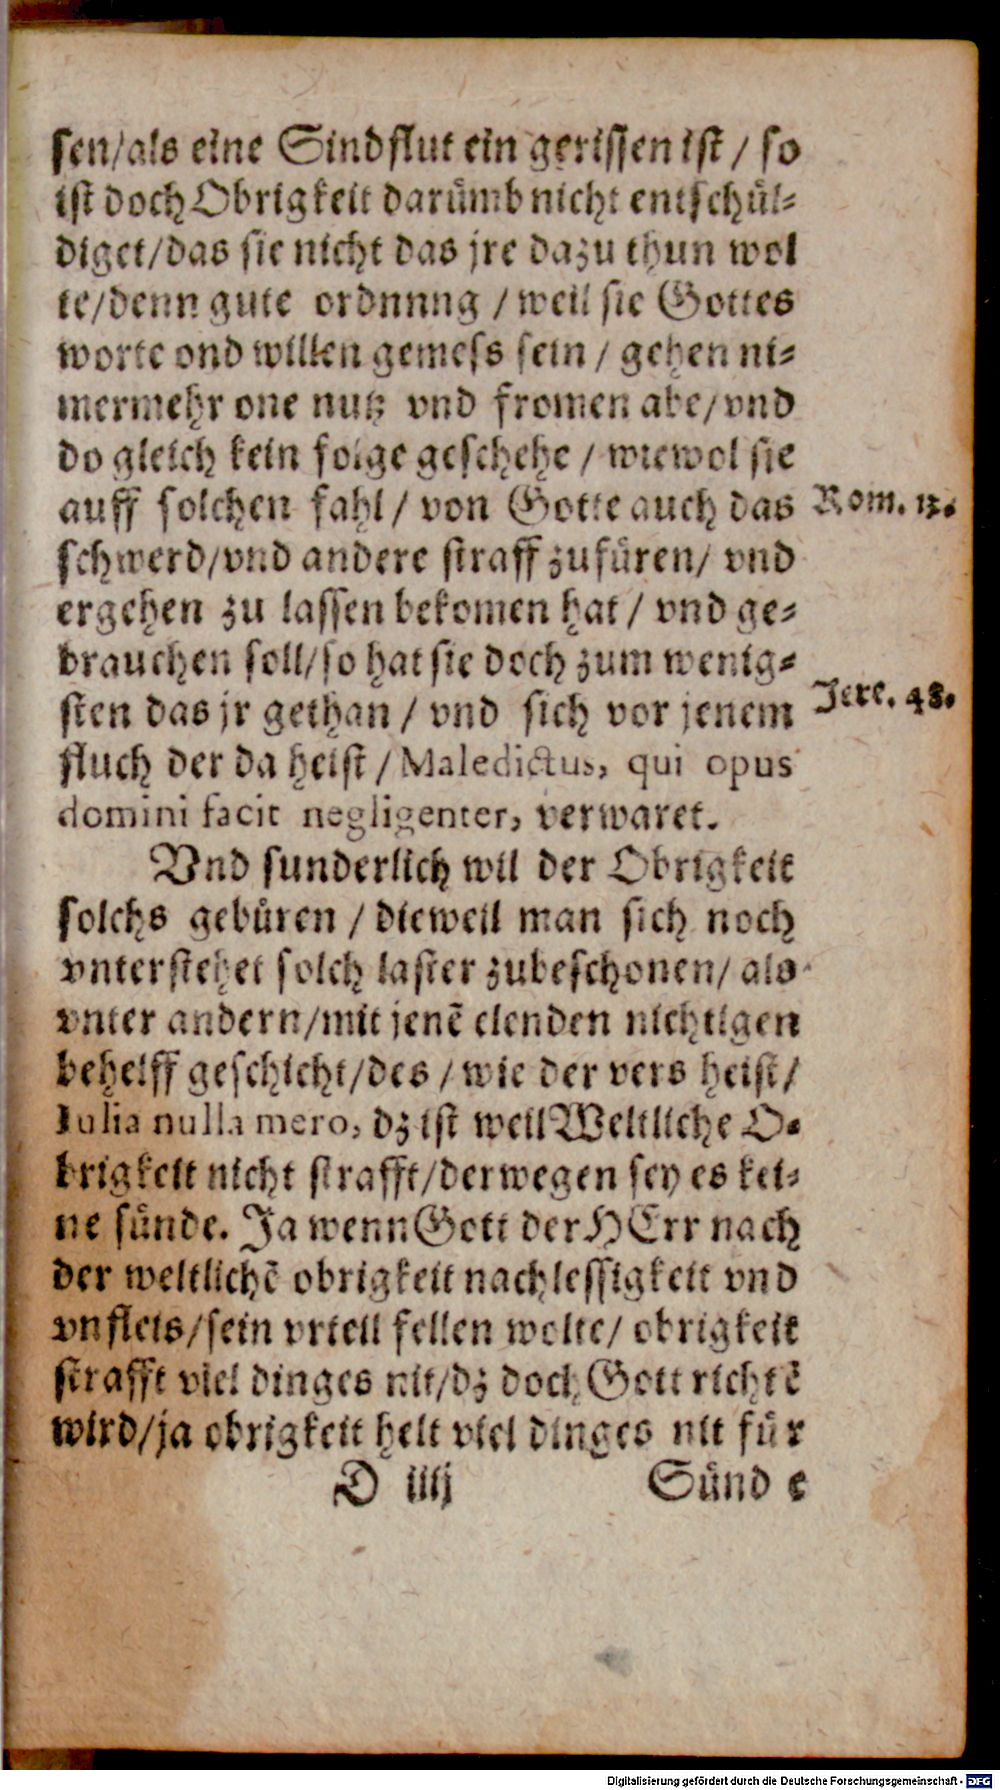 sen/als eine Sindflut ein gerissen ist / so
ist doch Obrigkeit darümb nicht entschül⸗
diget/das sie nicht das jre dazu thun wol
te/denn gute ordnnng / weil sie Gottes
worte ond willen gemess sein / gehen ni⸗
mermehr one nutz vnd fromen abe/vnd
do gleich kein folge geschehe / wiewol sie
auff solchen fahl / von Gotte auch das Rom. 13.
schwerd/vnd andere straff zufüren/ vnd
ergehen zu lassen bekomen hat / vnd ge⸗
brauchen soll/so hat sie doch zum wenig⸗
sten das jr gethan / vnd sich vor jenem Jere. 48.
fluch der da heist / Maledictus, qui opus
domini facit negligenter, verwaret.
Vnd sunderlich wil der Obrigkeit
solchs gebüren / dieweil man sich noch
vnterstehet solch laster zubeschonen/ als
vnter andern/mit jenē elenden nichtigen
behelff geschicht/des / wie der vers heist/
Iulia nulla mero, dz ist weil Weltliche O⸗
brigkeit nicht strafft/derwegen sey es kei⸗
ne sünde. Ja wenn Gott der HErr nach
der weltlichē obrigkeit nachlessigkeit vnd
vnfleis/sein vrteil fellen wolte/ obrigkeit
strafft viel dinges nit/dz doch Gott richtē
wird/ja obrigkeit helt viel dinges nit für
D iiij Sünd e
Digitalisierung gefördert durch die Deutsche Forschungsgemeinschaft - DFG